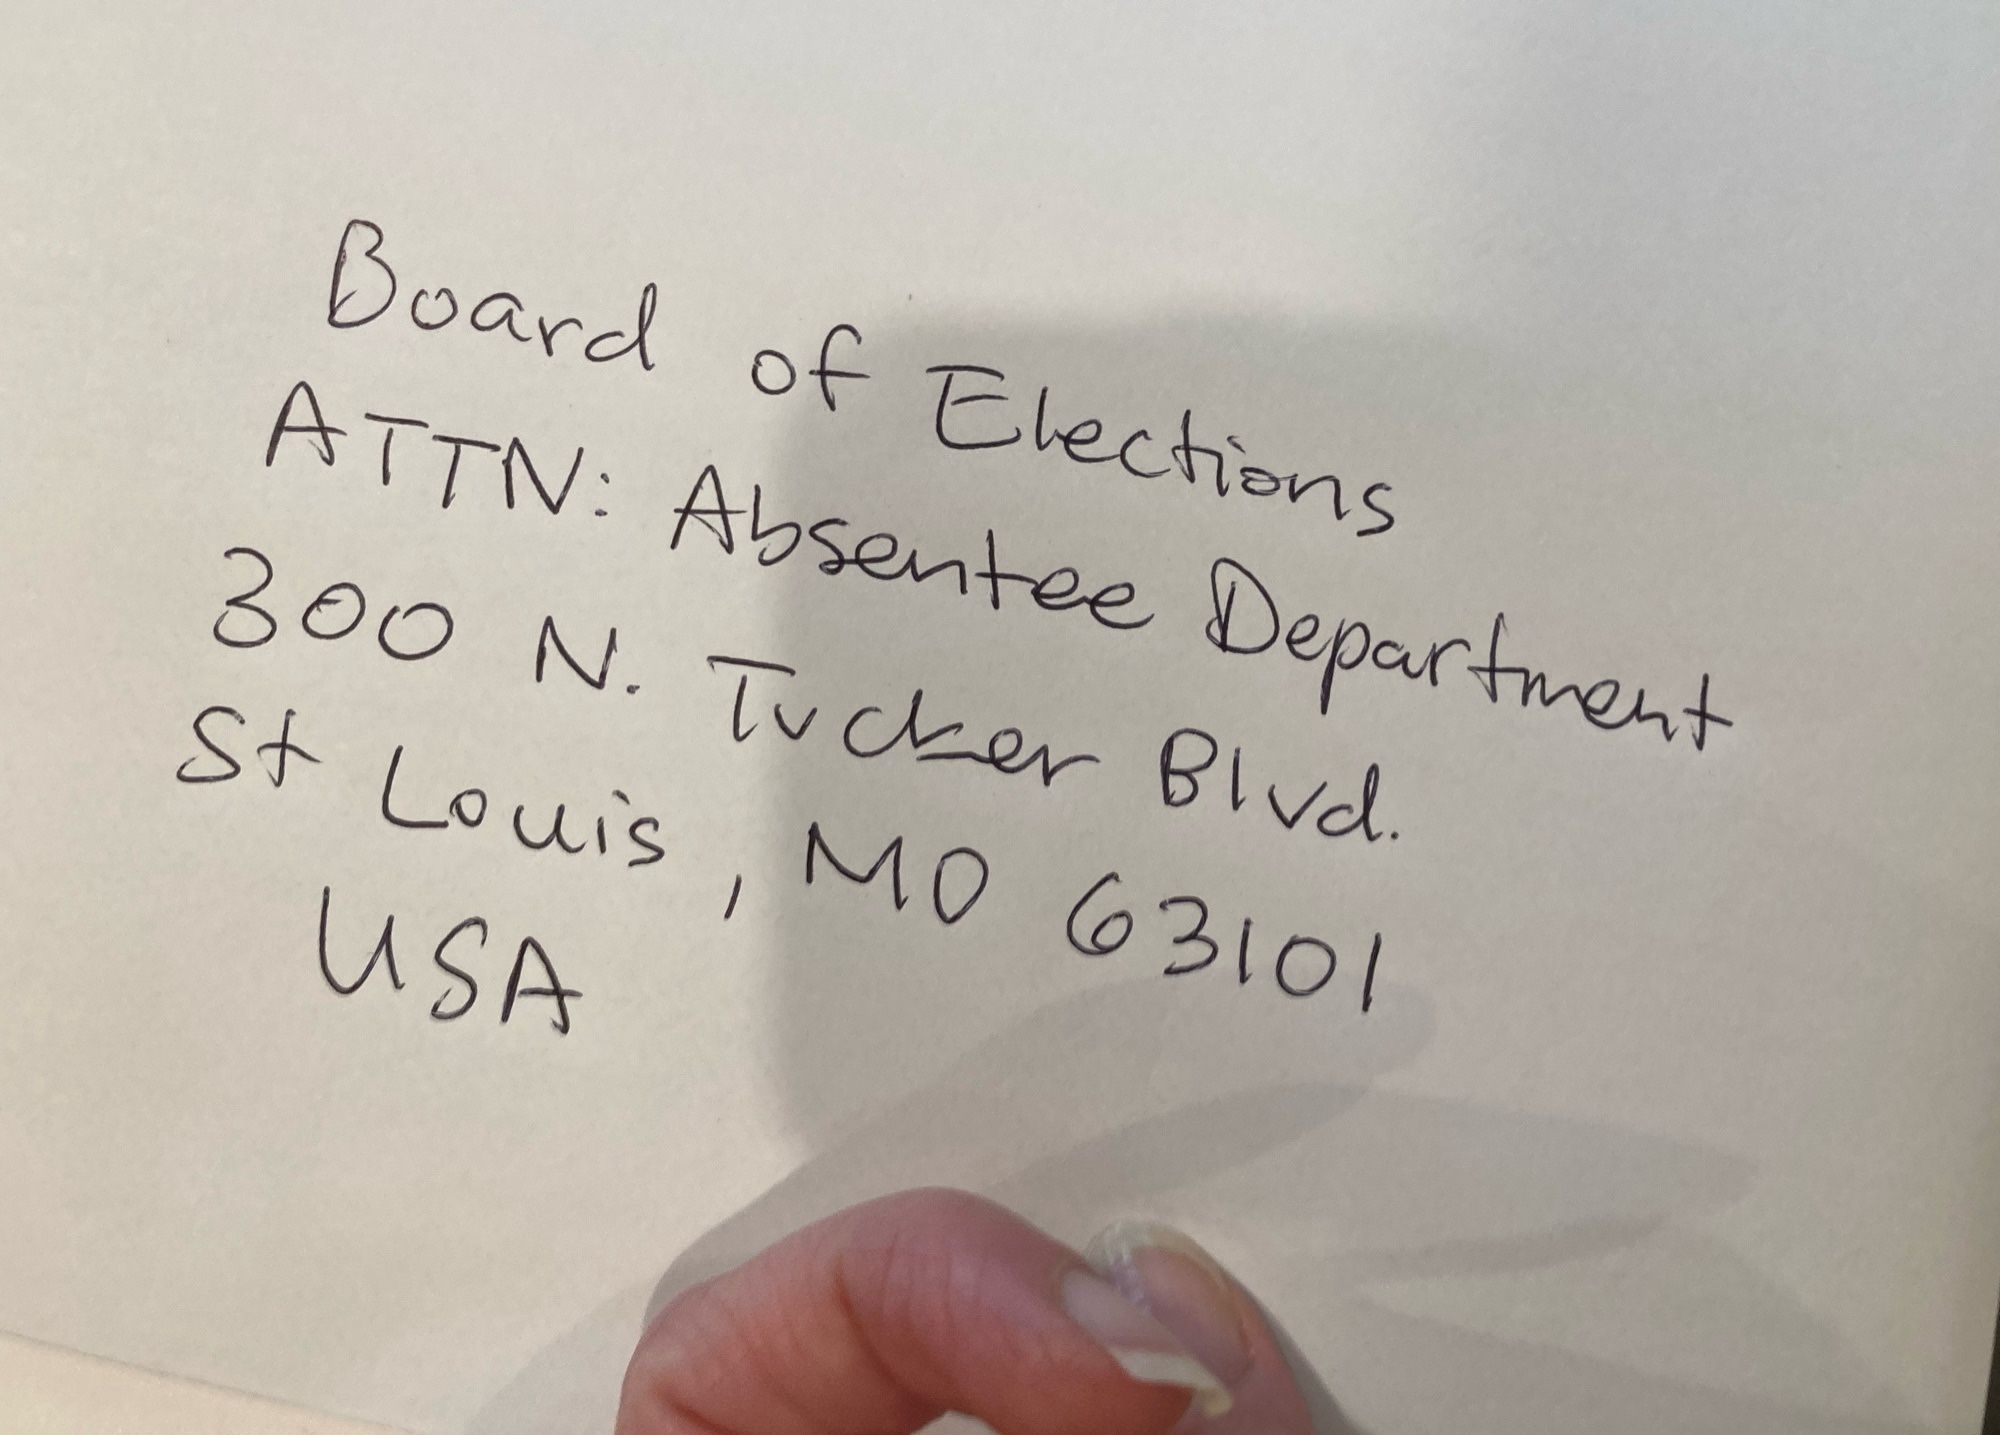 Board of Elections
ATTN: Absentee Department
300 N. Tucker Blvd.
St Louis, MO 63101
USA